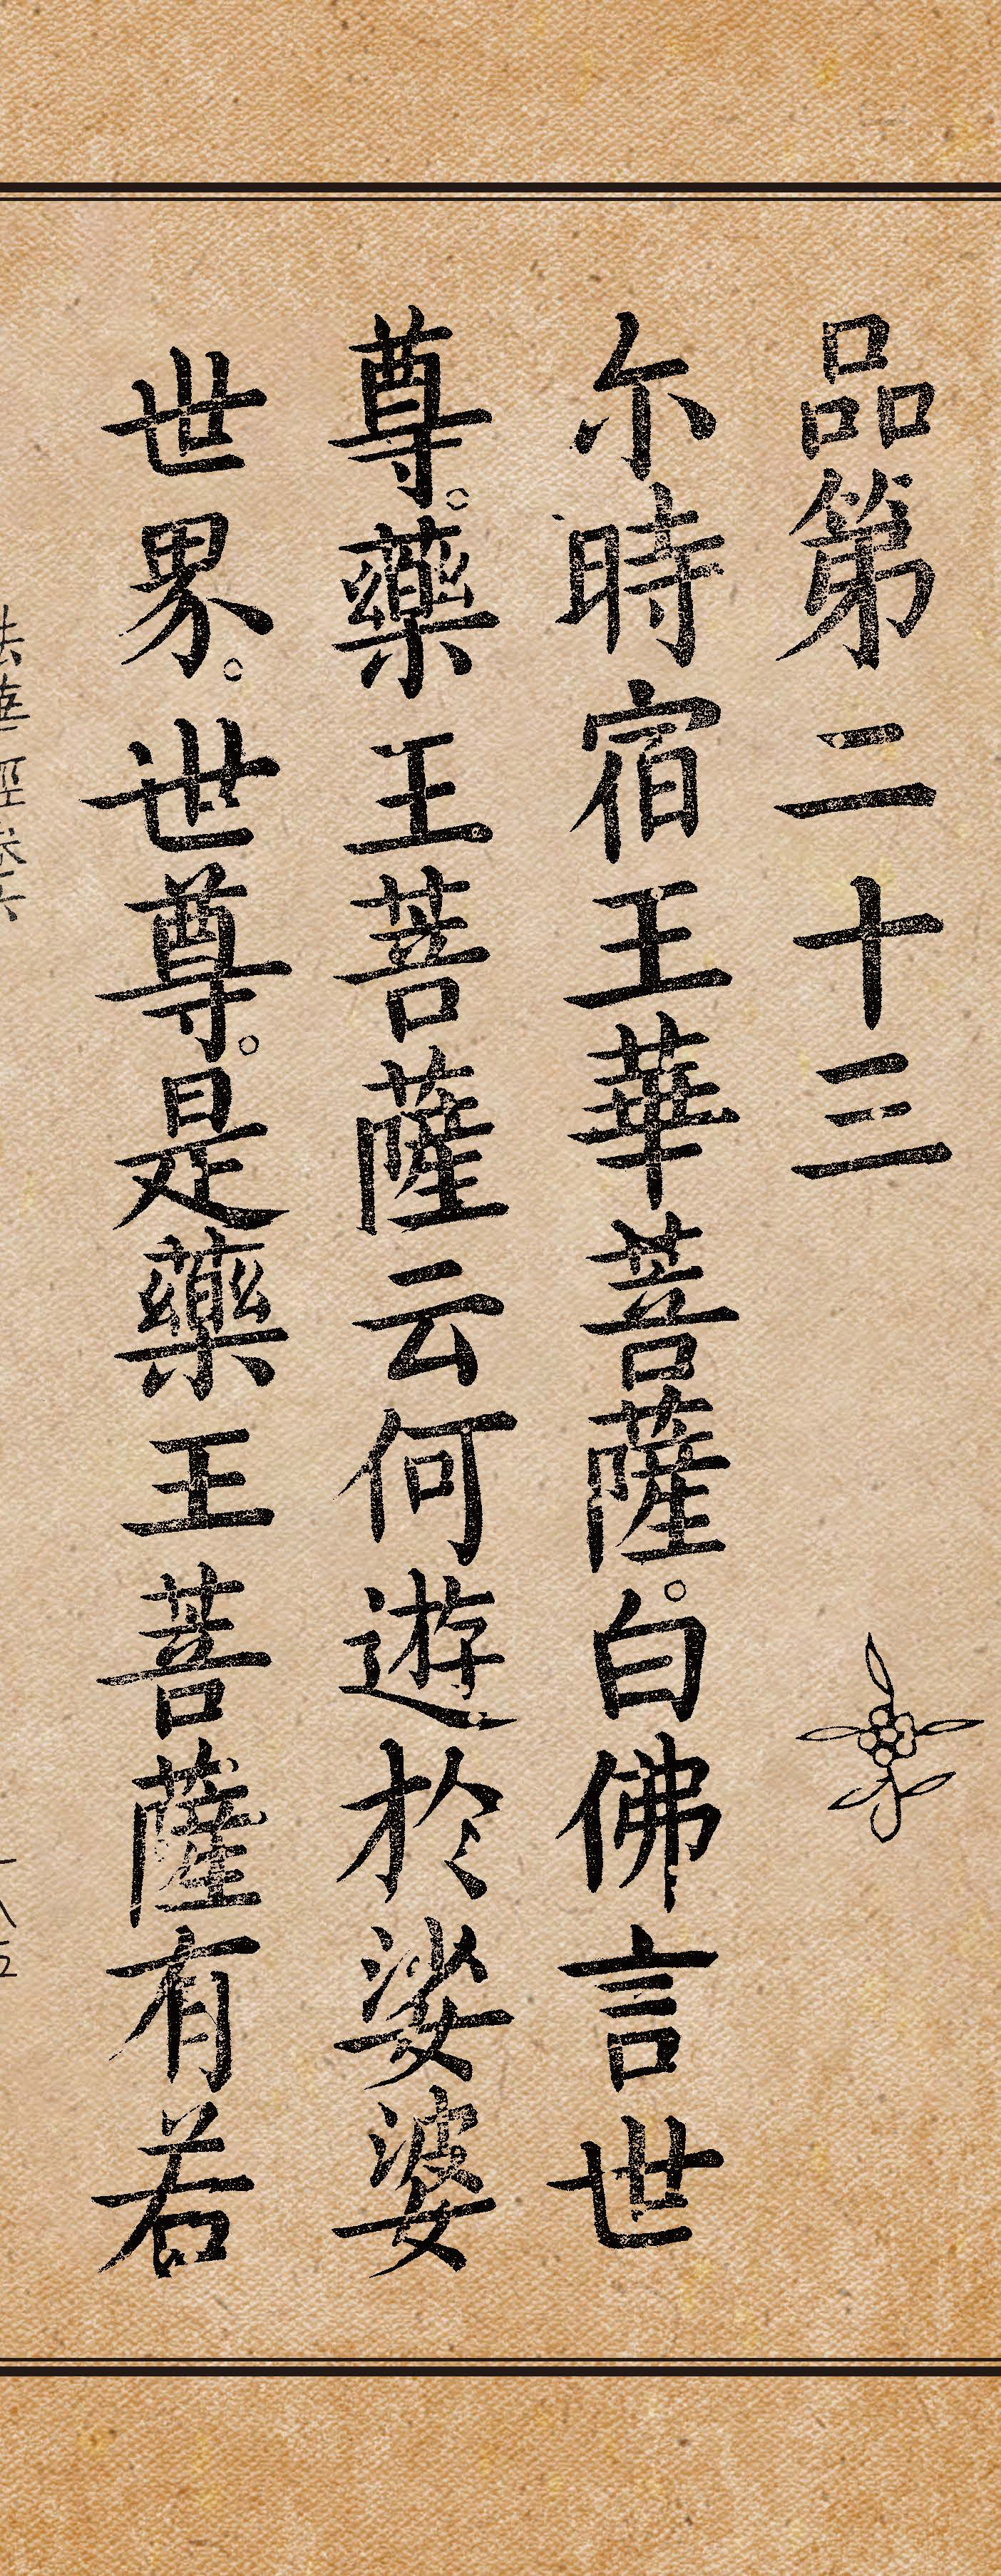 品第二十三
尒時宿王華菩薩。白佛言世
尊。藥王菩薩云何遊於娑婆
世界。世尊。是藥王菩薩有若